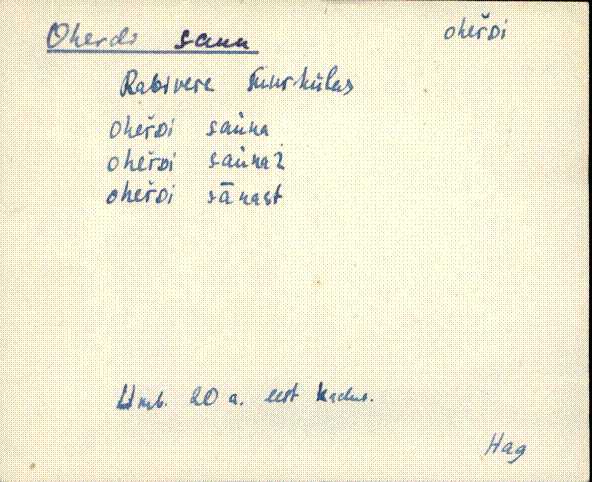 Oherdi saun oheřᴅi
Rabivere Suurkülas
oheřᴅi saùna
oheřᴅi saùnaʒ
oheřᴅi sānast
Umb. 20 a. eest kadus.
Hag